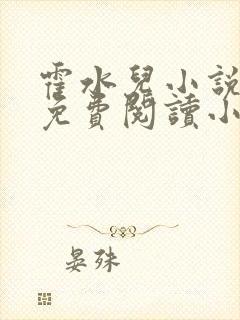 霍水兒小說
免費閱讀小
晏殊